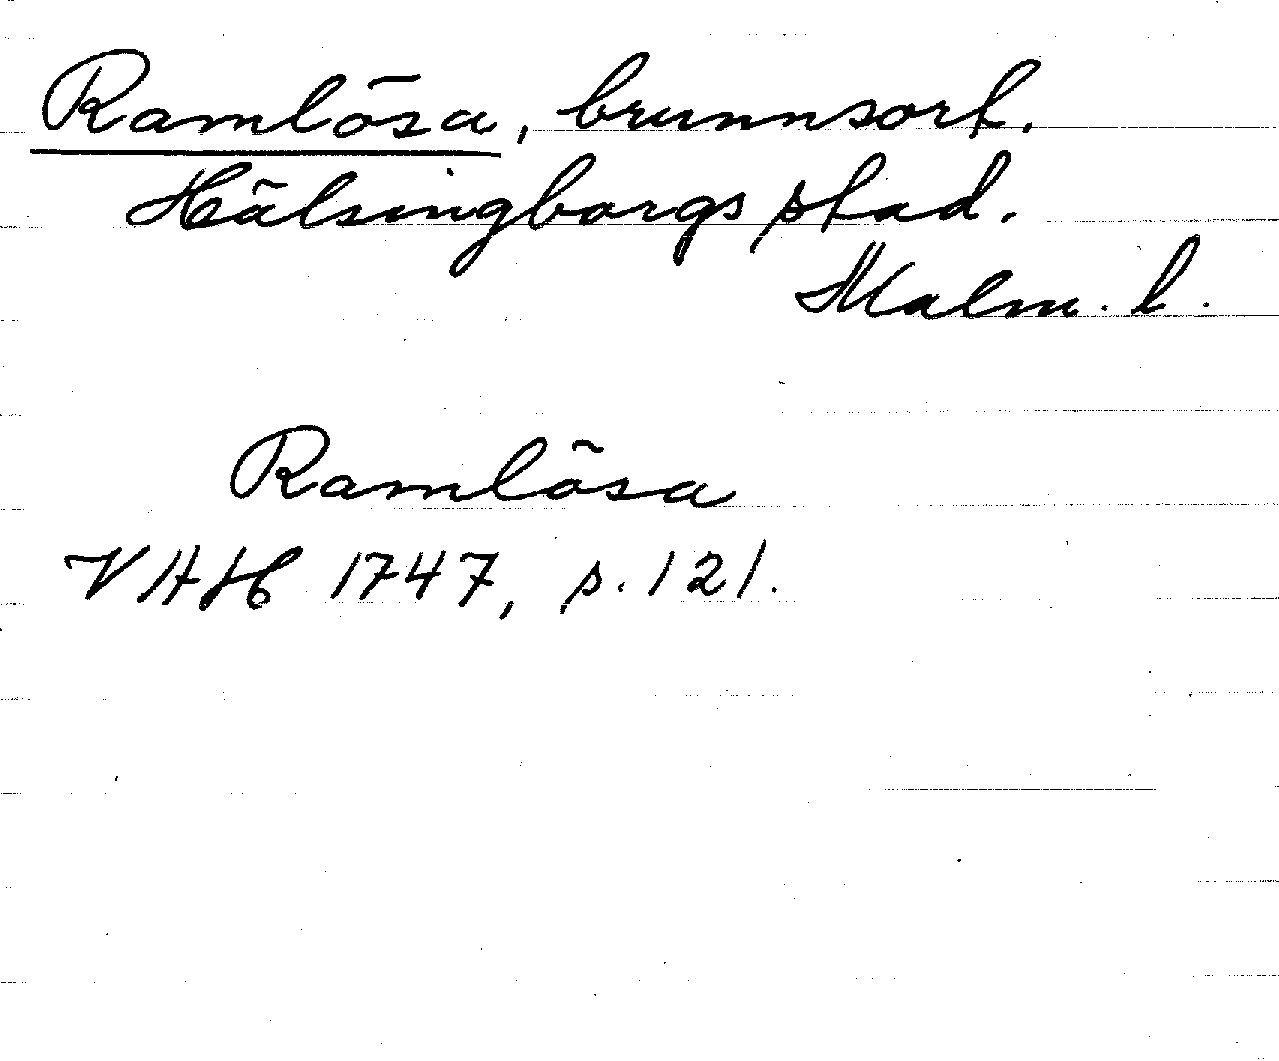 Ramlösa, brunnsort.
Hälsingborgs stad.
Malm. l.
Ramlösa
VHAH 1747, s. 121.